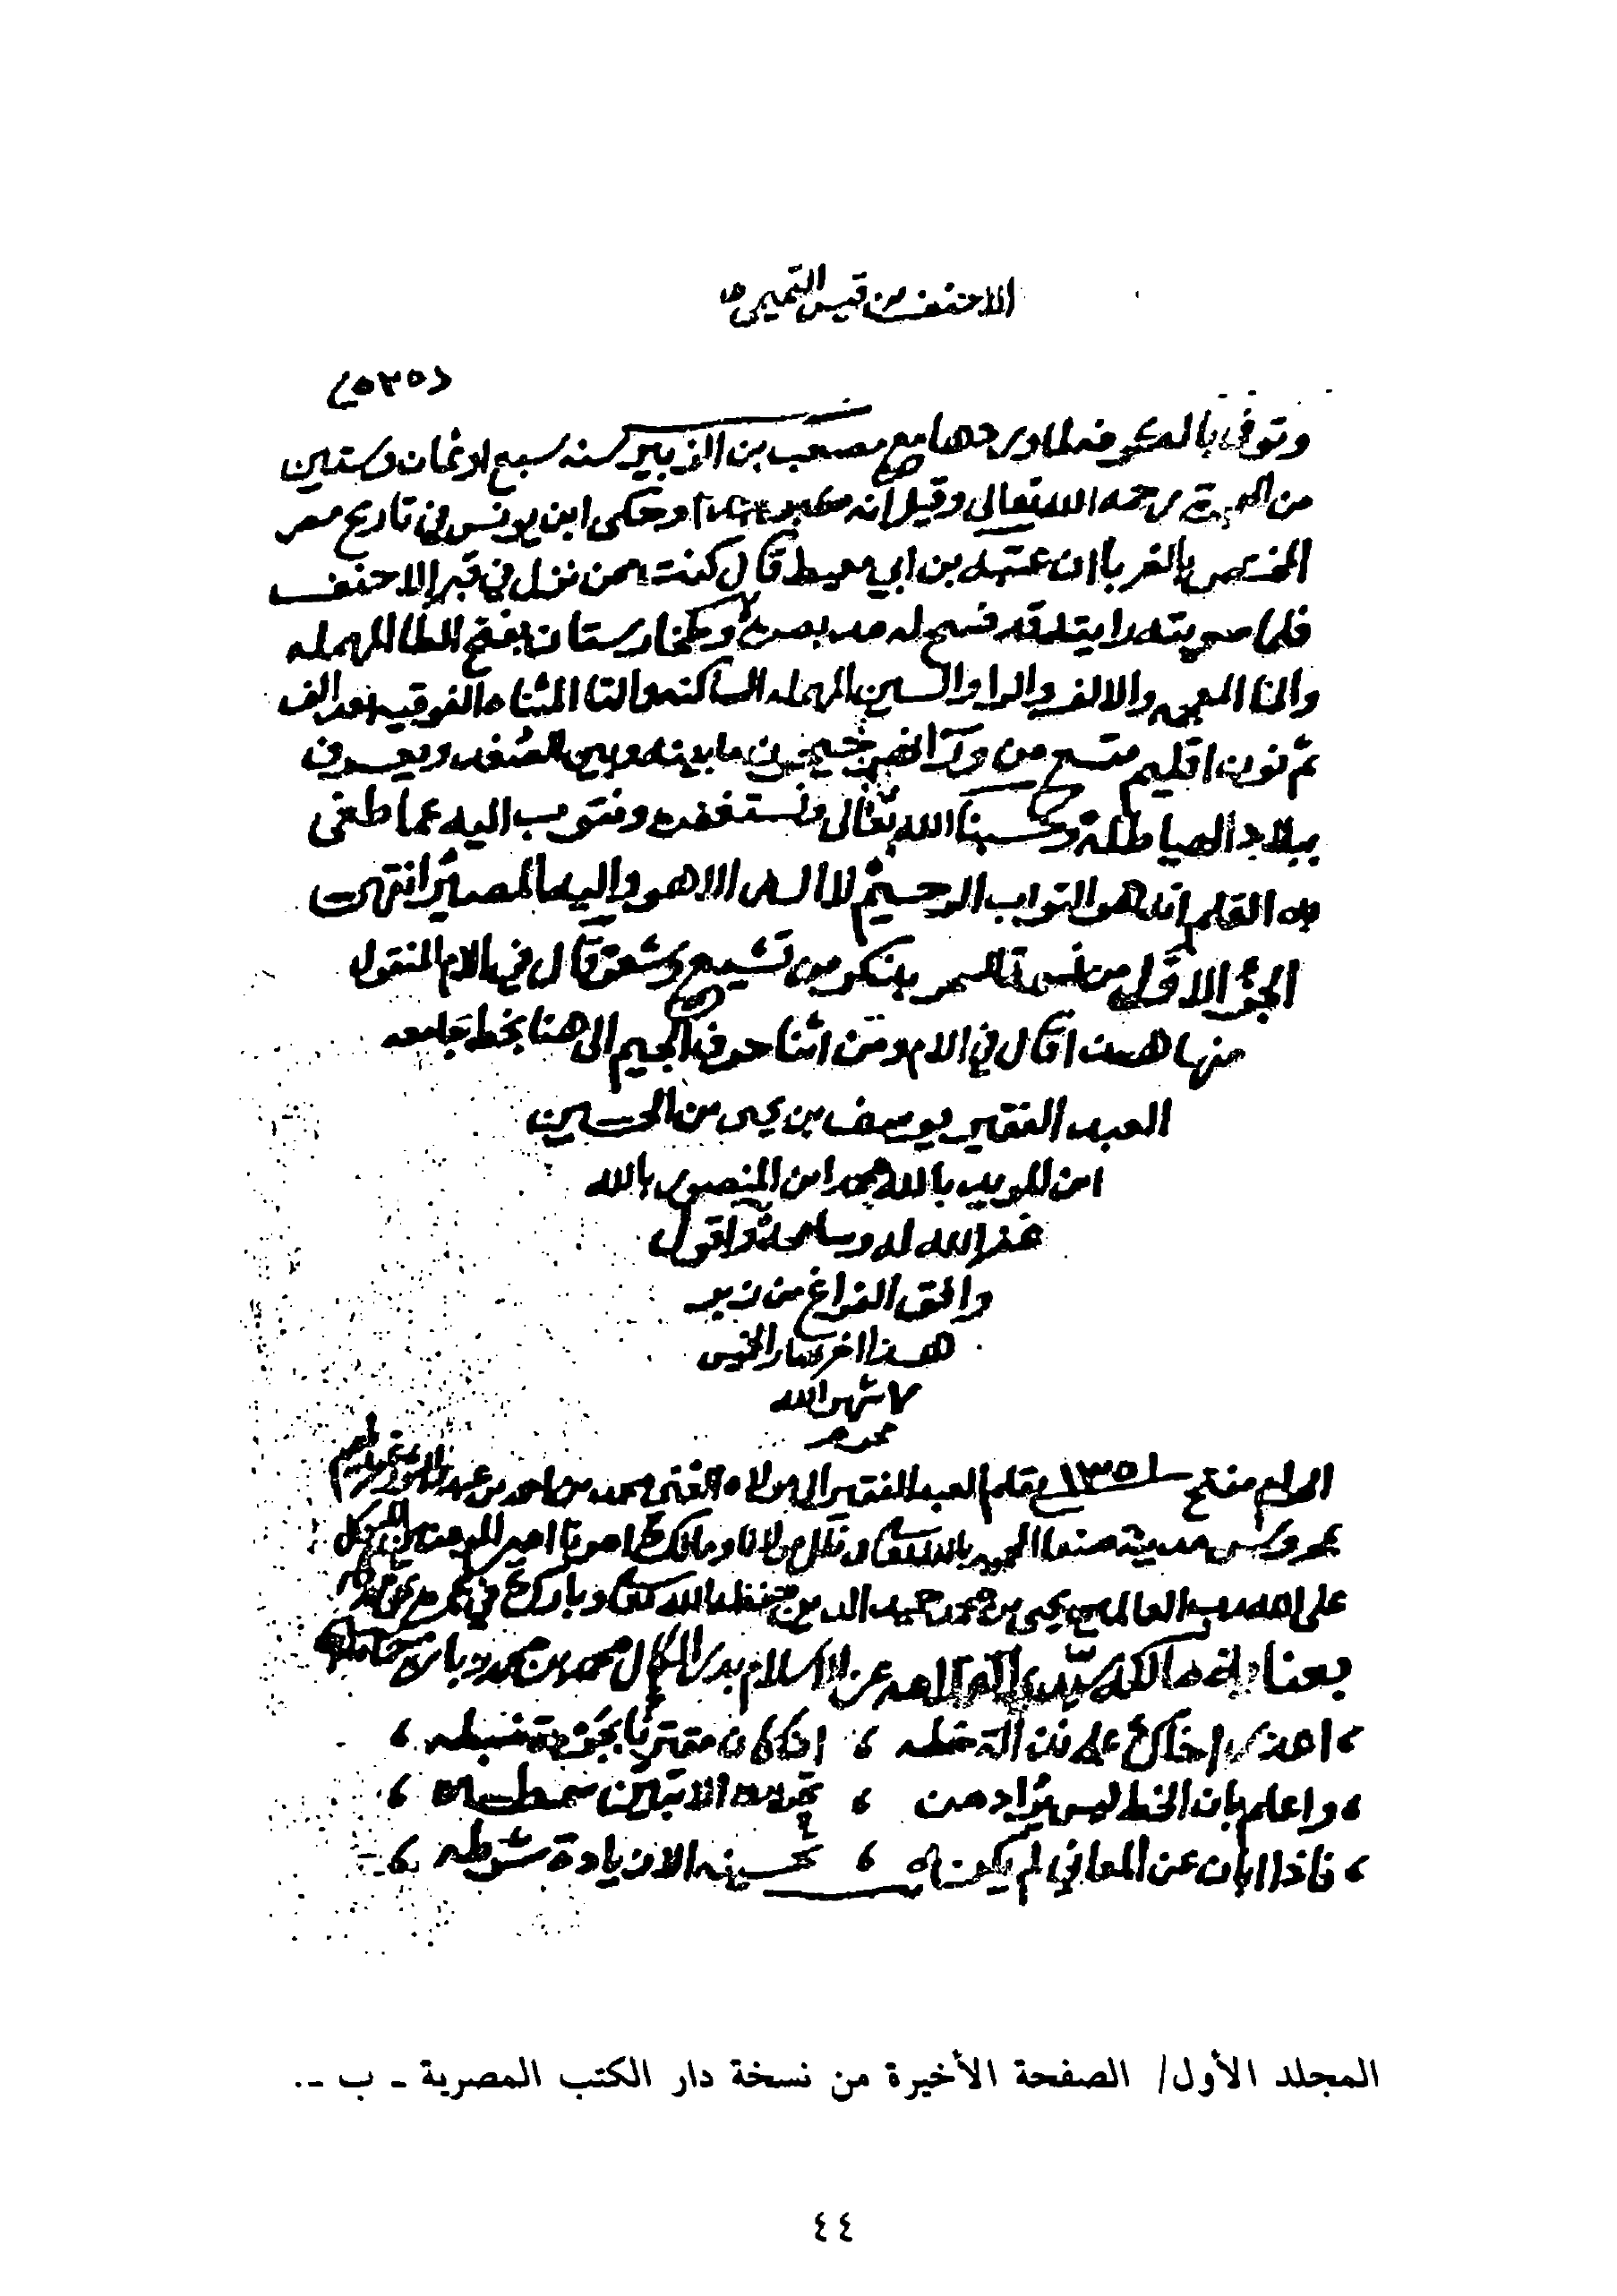 الاحنف بن قيس التميمي
(٥٢٥)
وتوفى بالكوفه لما ورجها مع مصعب بن الزبير سنه سبع او ثمان وستين
من الهجرة رحمه الله تعالى وقيل انه وحكى ابن يونس في تاريخ مصر
المختص بالغربا ان عقبه بن ابي معيط قال كنت ممن نزل في قبر الاحنف
فلما سويته رايته قد فسح له مد بصرى وطخارستان بفتح الطا المهمله
والخا المعجمه والالف والرا والسين المهمله الساكنه والتا المثناه الفوقيه بعد الف
ثم نون اقليم متسع من ورآ نهر جيحون ما بينه وبين الصغد ويعرف
ببلاد الهياطلة وحسبنا الله تعالى ونستغفره ونتوب اليه عما طغى
به القلم انه هو التواب الرحيم لا اله الا هو واليه المصير انتهت
الجزء الاول من نسمة السحر بذكر من تشيع وشعر قال في الام المنقول
منها هذا قال في الام ومن اثنا حرف الجيم الى هنا بخط جامعه
العبد الفقير يوسف بن يحيى بن الحسين
ابن المويد بالله محمد ابن المنصور بالله
غفر الله له وسامحه واقول
وافق الفراغ من زبر
هذا اخر نهار الخميس
٧ شهر الله
محرم
الحرام مفتح ١٣٥١ بقلم العبد الفقير الى مولاه الغنى محمد بن احمد بن عبد
بمحروس مدينة صنعا المحميه بالله تعالى مولانا ومالك امرنا امير المومنين المتوكل
على الله رب العالمين يحيى بن محمد حميد الدين حفظه الله تعالى وبارك في
بعناية مالكه سيدي عز الاسلام بدر الكمال محمد بن محمد زباره
اعذر اخاك على نذالة خطه ، اذ كان مقترنا بجودة ضبطه ،
واعلم بان الخط ليس يراد من ، تجويده الا تبين سمطه ،
فاذا ابان عن المعاني لم يكن ، تحسينه الا زيادة شرطه ،
المجلد الأول/ الصفحة الأخيرة من نسخة دار الكتب المصرية ـ ب ـ.
٤٤